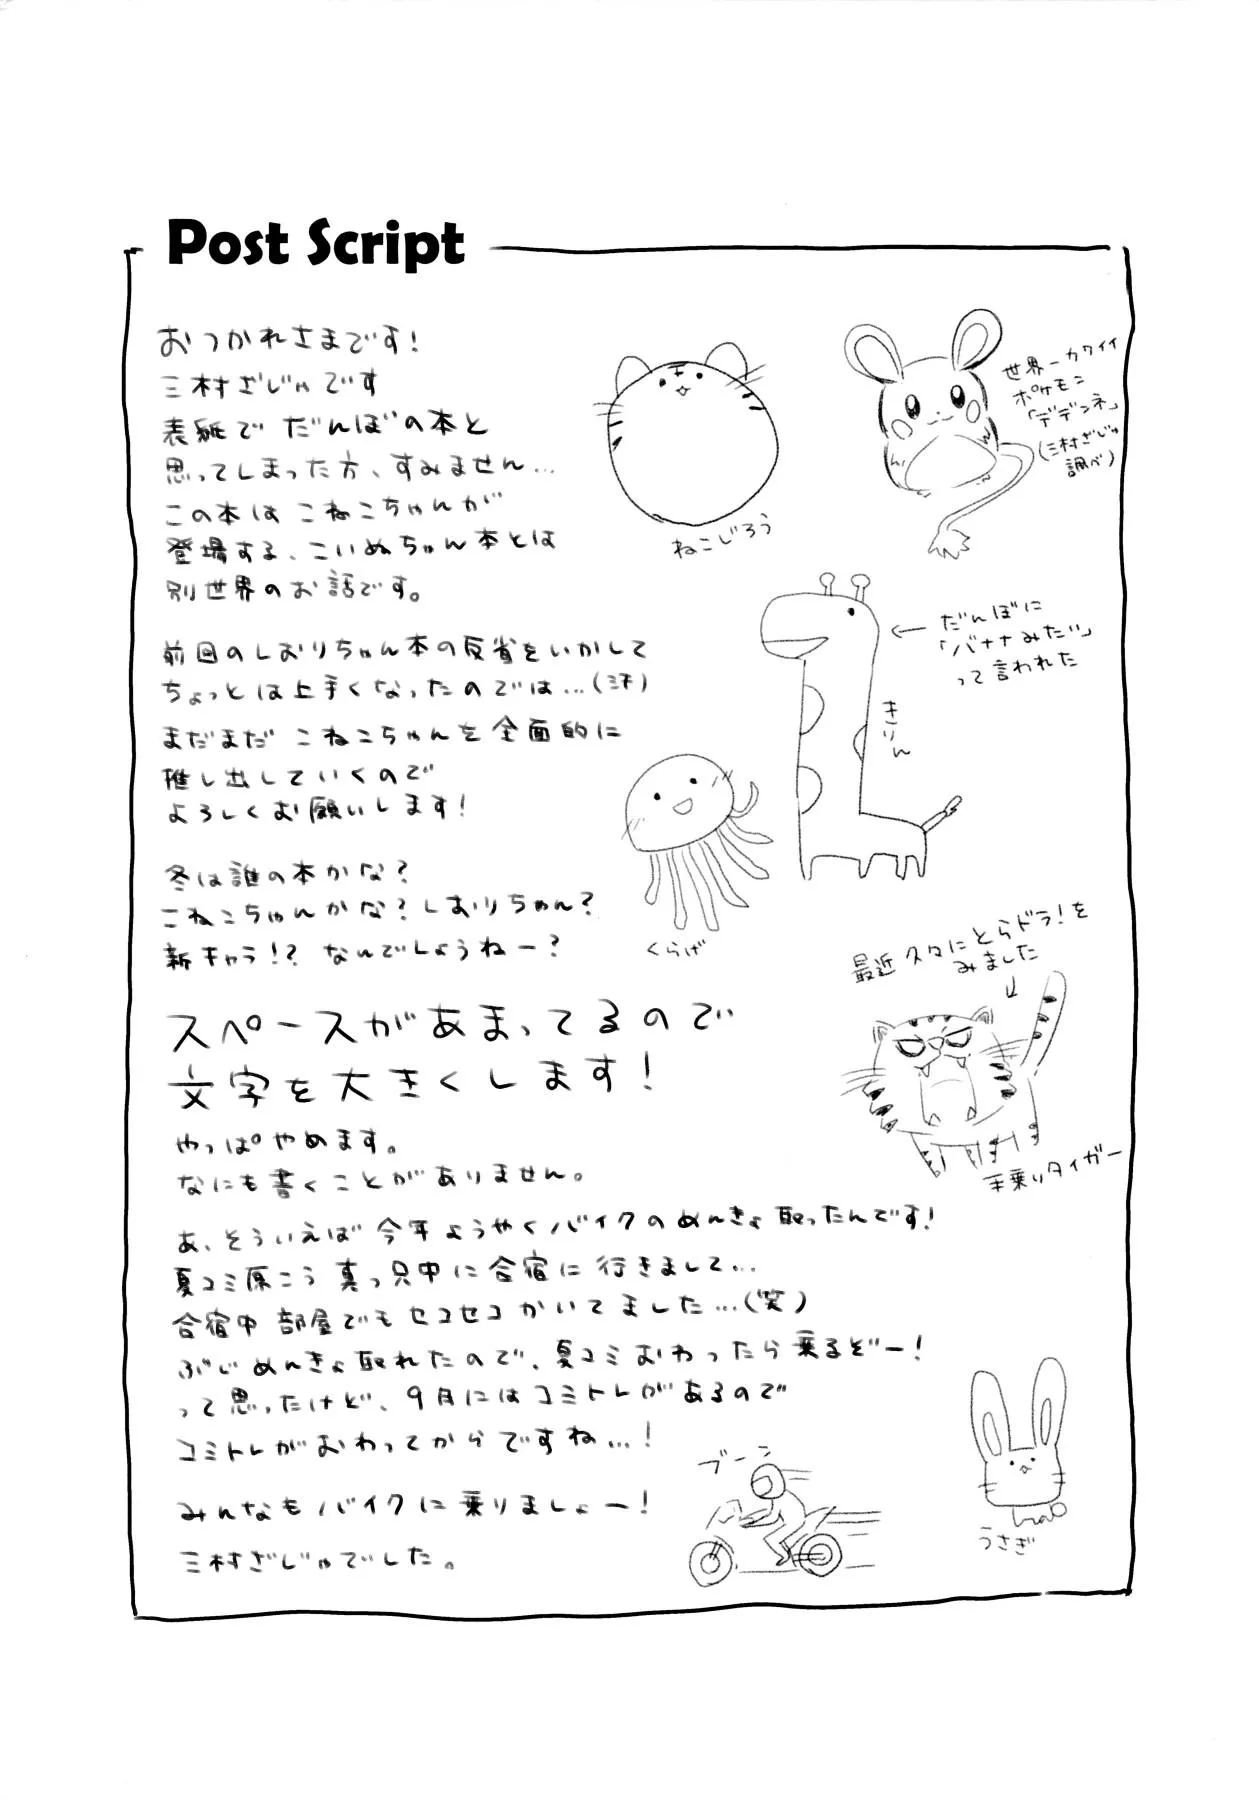 Post Script
おつかれさまです!
三村ざじゃです
表紙で だんぼの本と
思ってしまった方、すみません…
この本は こねこちゃんが
登場する、こいぬちゃん本とは
別世界のお話です。
前回のしおりちゃん本の反省をいかして
ちょっとは上手くなったのでは…(汗)
まだまだ こねこちゃんを全面的に
推し出していくので
よろしくお願いします!
冬は誰の本かな?
こねこちゃんかな?しおりちゃん?
新キャラ!? なんでしょうねー?
スペースがあまってるので
文字を大きくします!
やっぱやめます。
なにも書くことがありません。
あ、そういえば 今年ようやくバイクのめんきょ取ったんです!
夏コミ原こう 真っ只中に合宿に行きまして…
合宿中 部屋でもセコセコかいてました…(笑)
ぶじめんきょ取れたので、夏コミおわったら乗るぞー!
って思ったけど、9月にはコミトレがあるので
コミトレがおわってからですね…!
みんなもバイクに乗りましょー!
三村ざじゃでした。
ねこじろう
世界一カワイイ
ポケモン
「デデンネ」
(三村ざじゃ
調べ)
← だんぼに
「バナナみたい」
って言われた
きりん
くらげ
最近 久々にとらドラ!を
みました
↓
手乗りタイガー
ブーン
うさぎ